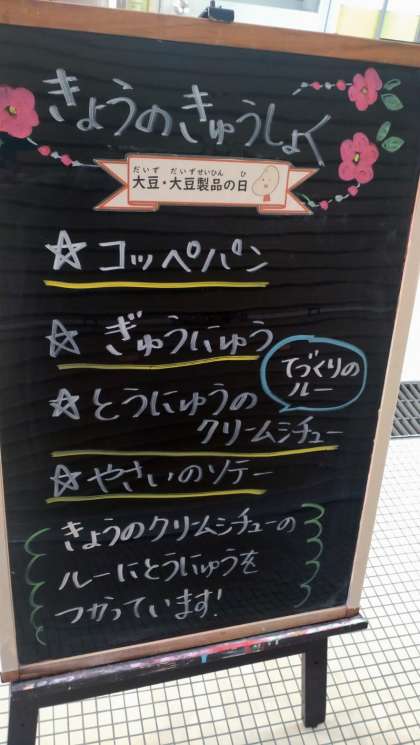 きょうのきゅうしょく
だいず だいずせいひん ひ
大豆・大豆製品の日
☆コッペパン
☆ぎゅうにゅう
☆とうにゅうの
クリームシチュー
てづくりの
ルー
☆やさいのソテー
きょうのクリームシチューの
ルーにとうにゅうを
つかっています!